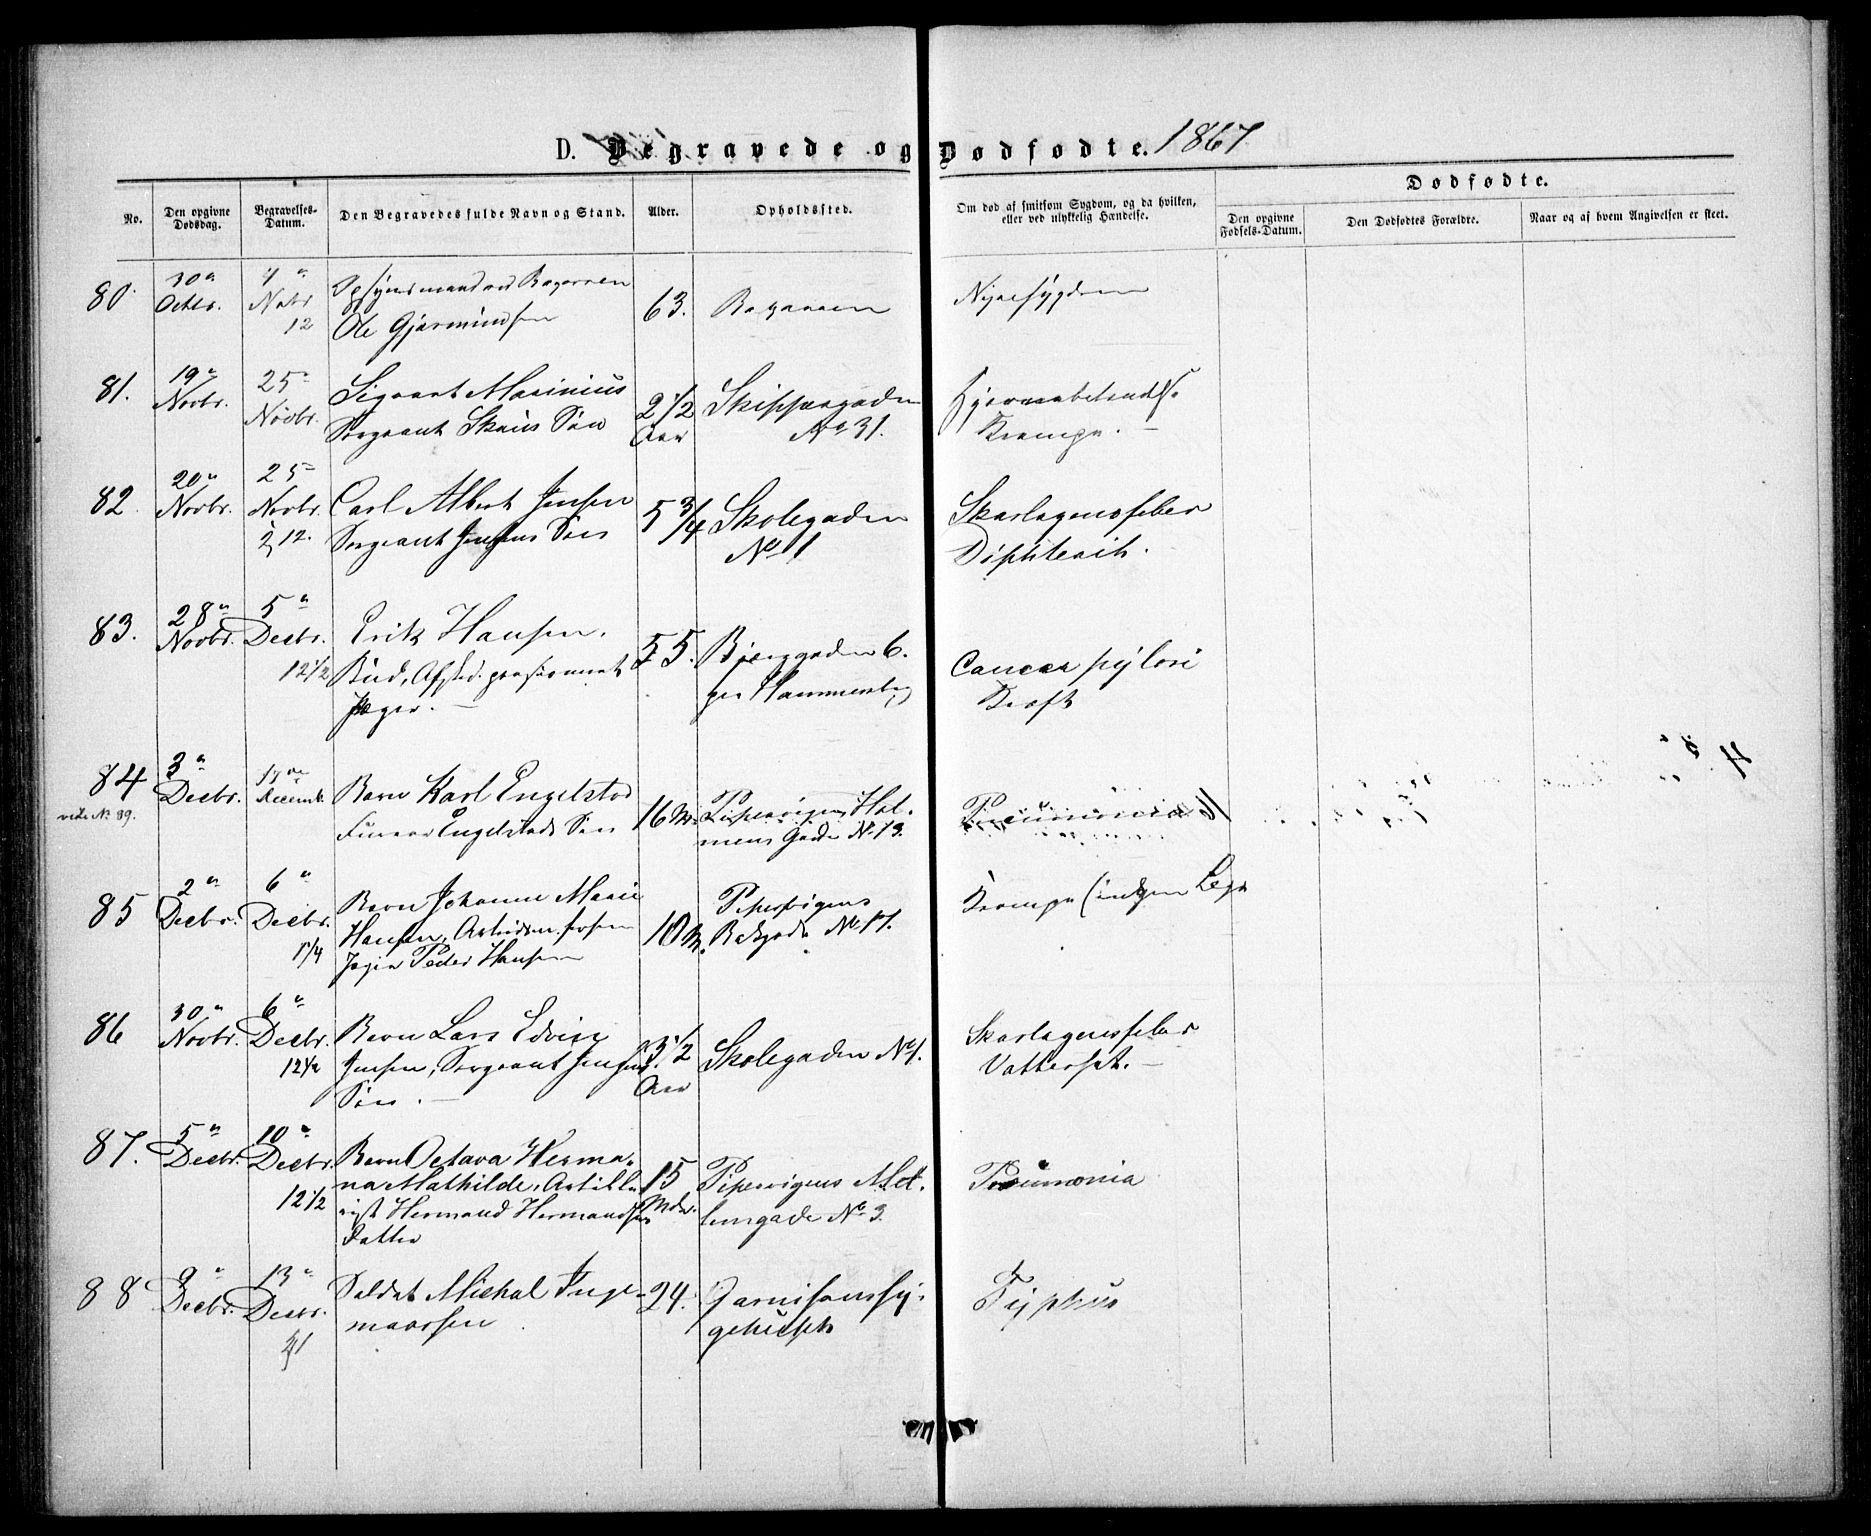 D. Begravede og Dødfødte. 1867
No.
Den opgivne Dødsdag.
Begravelses-Datum.
Den Begravedes fulde Navn og Stand.
Alder.
Opholdssted.
Om død af smitsom Sygdom, og da hvilken, eller ved ulykkelig Hændelse.
Dødfødte.
Den opgivne Fødsels-Datum.
Den Dødfødtes Forældre.
Naar og af hvem Angivelsen er skeet.
80. 30 Octbr. 4 Novbr 12
Ole Gjermundsen
63.
Nyresygdom
81. 19 Novbr. 25 Novbr.
Sigvart Marinius
Sergeant Skaus Søn
2 1/2 Aar
Skippergaden
No 31.
Krampe.
82. 20 Novbr. 25 Novbr. 12.
Carl Albert Jensen
Sergeant Jensens Søn
5 3/4
Skolegaden
No 1
Skarlagensfeber
Diphterit.
83. 28 Novbr. 5 Decbr. 12 1/2
Erik Hansen.
Bud, Afsked.
Jæger.
55.
Bjerggaden 6.
pr Hammersborg
Cancer pylori
Kræft
84 3 Decbr. Decemb.
vide No 89.
Barn Karl Engelstad
Engelstads Søn
16 M.
Pipervigens Hol-
mens Gade No 13.
Pneumonia
85 2 Decbr. 6 Decbr. 1 1/4
Barn Johanne Marie
Hansen,
Peder Hansen
10 M.
Pipervigens
Bakgade No 17.
Krampe (ingen Læge
86 30 Novbr. 6 Decbr. 12 1/2
Barn Lars Edvin
Jensen, Sergeant Jensens
Søn.
3 1/2 Aar
Skolegaden No 1.
Skarlagensfeber
Vattersot.
87. 5 Decbr. 10 Decbr. 12 1/2
Barn Octava Herma-
na Mathilde, Artille-
rist Hermand Hermandsens
Datter
15 Mdr.
Pipervigens Mel-
lemgade No 3.
Pneumonia
88 9 Decbr. 13 Decbr. 1
Soldat Michal Inge-
marsen
24.
Garnisonssy-
gehuset
Typhus